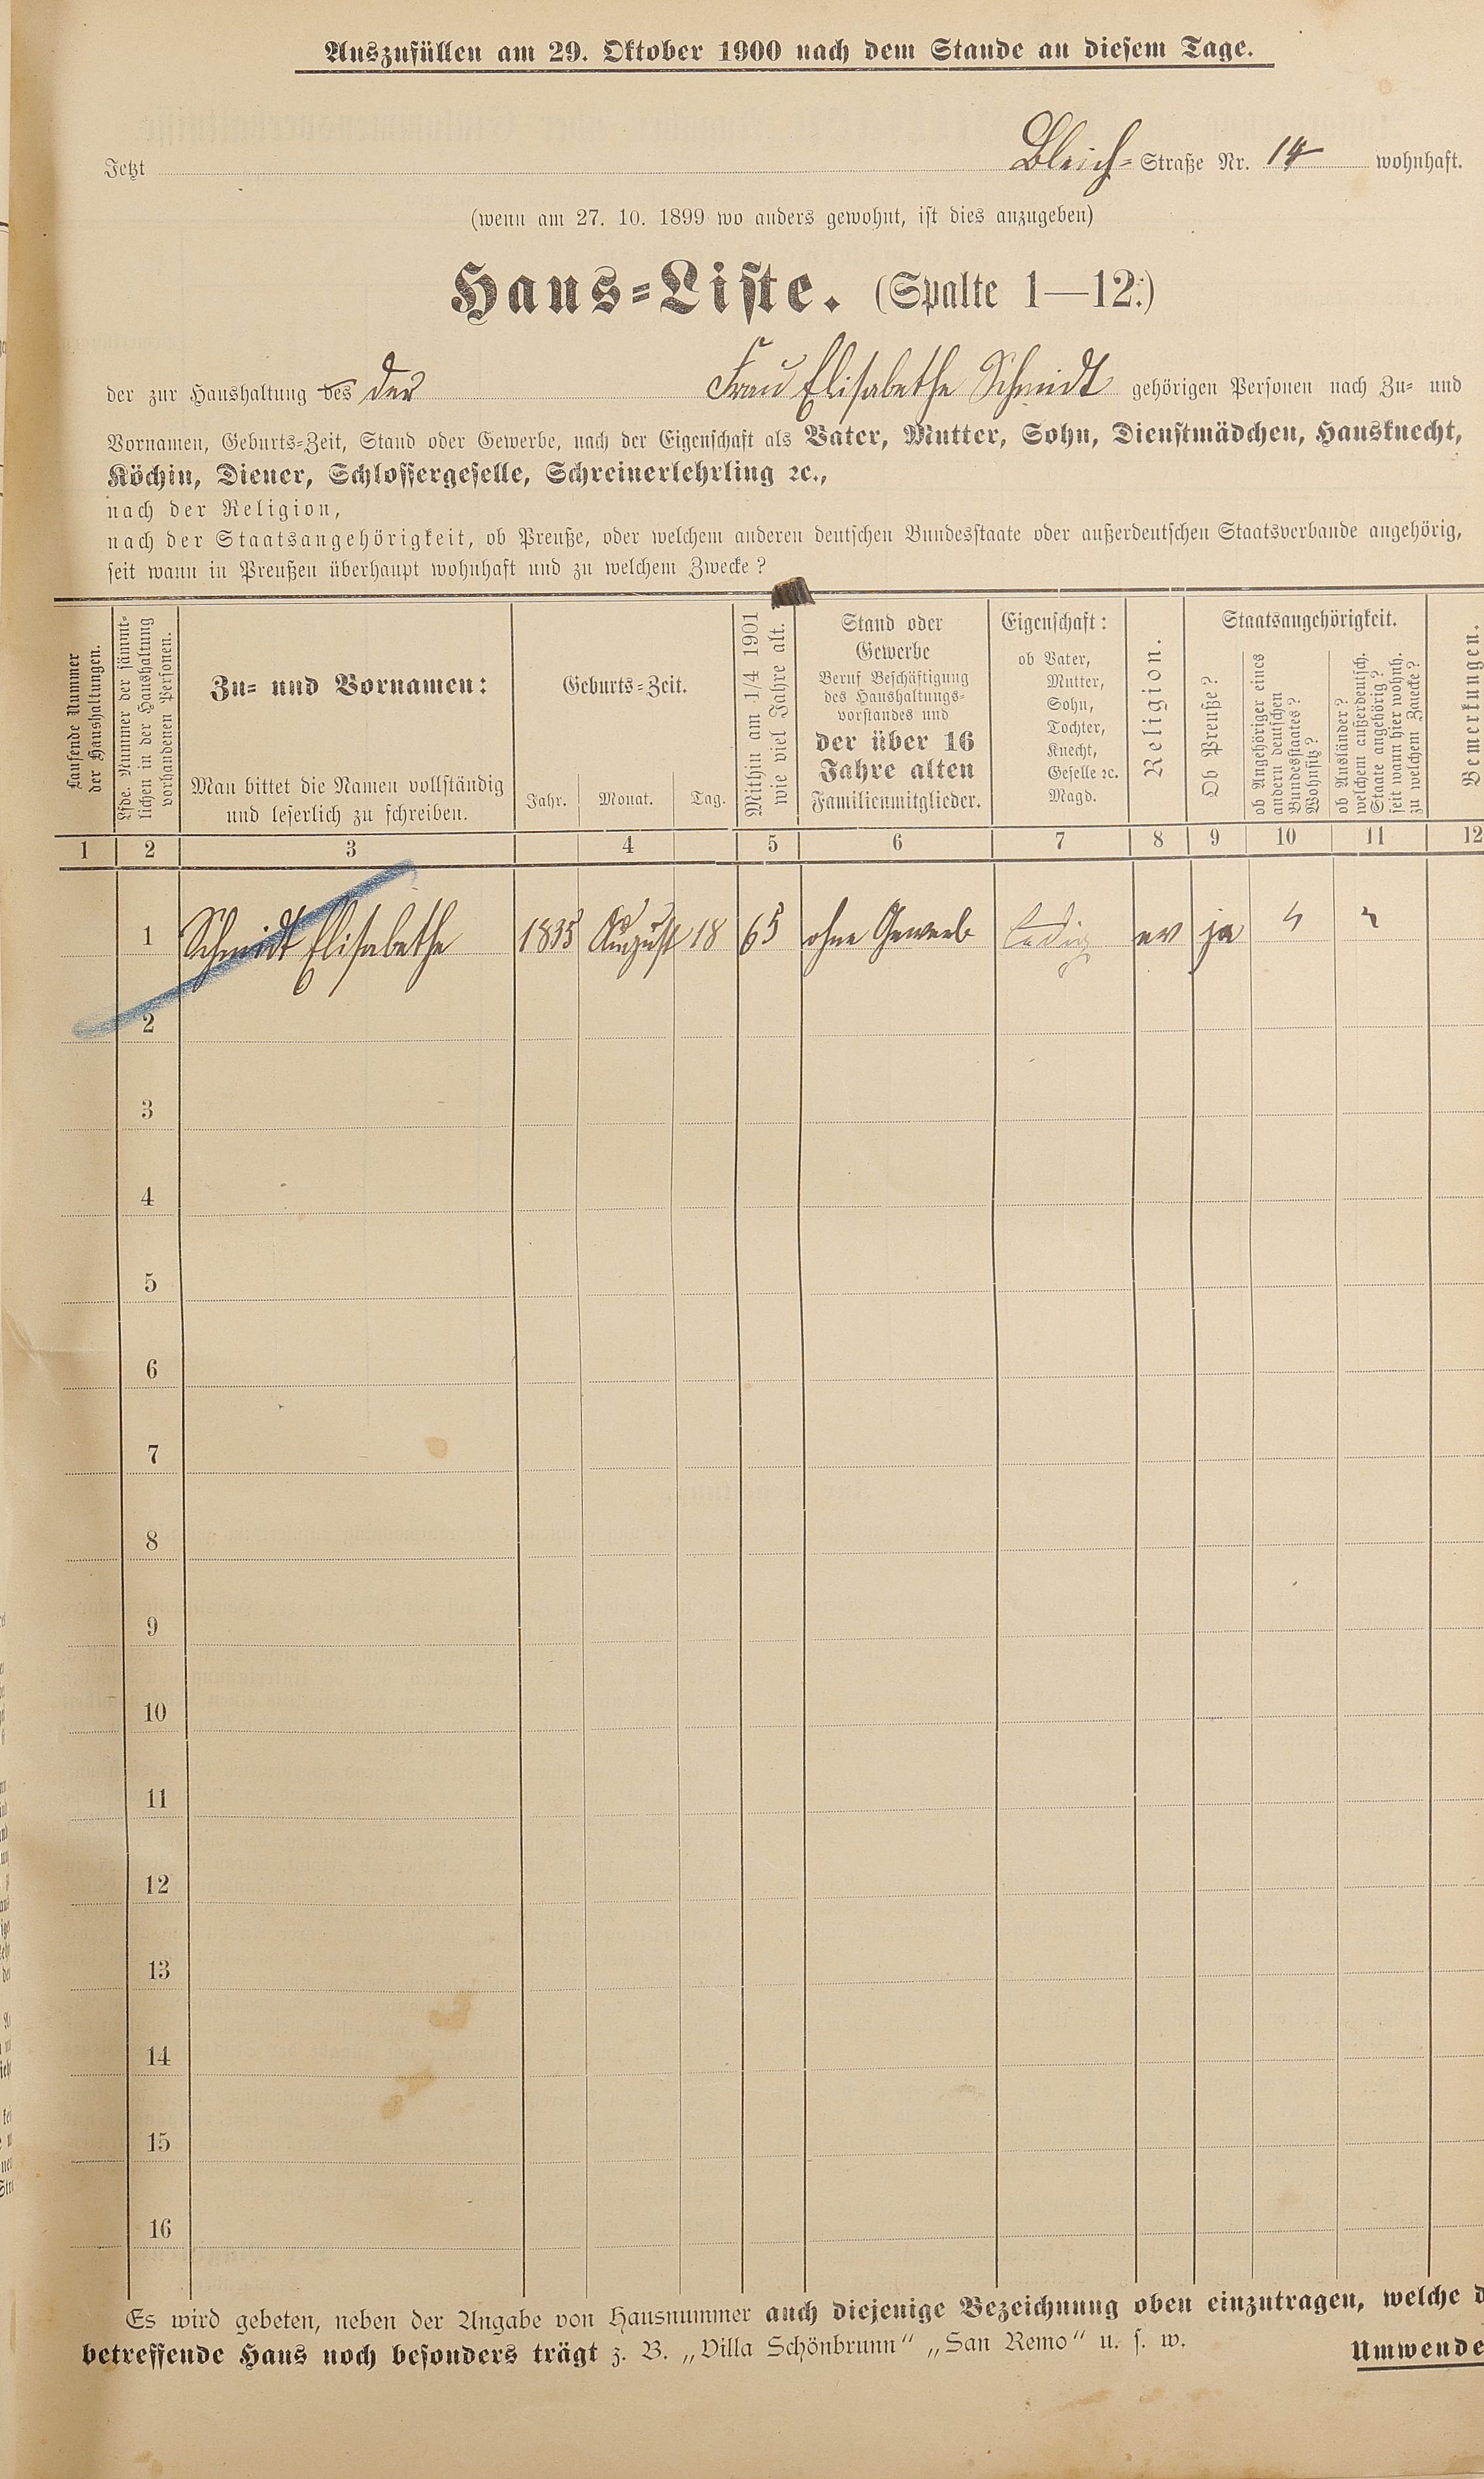 Auszufüllen am 29. Oktober 1900 nach dem Stande an diesem Tage.
Jetzt Bleich- Straße Nr. 14 wohnhaft.
(wenn am 27. 10. 1899 wo anders gewohnt, ist dies anzugeben)
Haus-Liste. (Spalte 1—12.)
der zur Haushaltung des der Frau Elisabethe Schmidt gehörigen Personen nach Zu- und
Vornamen, Geburts-Zeit, Stand oder Gewerbe, nach der Eigenschaft als Vater, Mutter, Sohn, Dienstmädchen, Hausknecht,
Köchin, Diener, Schlossergeselle, Schreinerlehrling ꝛc.,
nach der Religion,
nach der Staatsangehörigkeit, ob Preuße, oder welchem anderen deutschen Bundesstaate oder außerdeutschen Staatsverbande angehörig,
seit wann in Preußen überhaupt wohnhaft und zu welchem Zwecke?
Laufende Nummer
der Haushaltungen.
Lfde. Nummer der sämmt-
lichen in der Haushaltung
vorhandenen Personen.
Zu- und Vornamen:
Man bittet die Namen vollständig
und leserlich zu schreiben.
Geburts-Zeit.
Jahr. Monat. Tag.
Mithin am 1/4 1901
wie viel Jahre alt.
Stand oder
Gewerbe
Beruf Beschäftigung
des Haushaltungs-
vorstandes und
der über 16
Jahre alten
Familienmitglieder.
Eigenschaft:
ob Vater,
Mutter,
Sohn,
Tochter,
Knecht,
Geselle ꝛc.
Magd.
Religion.
Staatsangehörigkeit.
Ob Preuße?
ob Angehöriger eines
andern deutschen
Bundesstaates?
Wohnsitz?
ob Ausländer?
welchem außerdeutsch.
Staate angehörig?
seit wann hier wohnh.
zu welchem Zwecke?
Bemerkungen.
1 2 3 4 5 6 7 8 9 10 11 12
1 Schmidt Elisabethe 1835 August 18 65 ohne Gewerb ledig ev ja
2
3
4
5
6
7
8
9
10
11
12
13
14
15
16
Es wird gebeten, neben der Angabe von Hausnummer auch diejenige Bezeichnung oben einzutragen, welche d
betreffende Haus noch besonders trägt z. B. „Villa Schönbrunn" „San Remo" u. s. w. Umwende